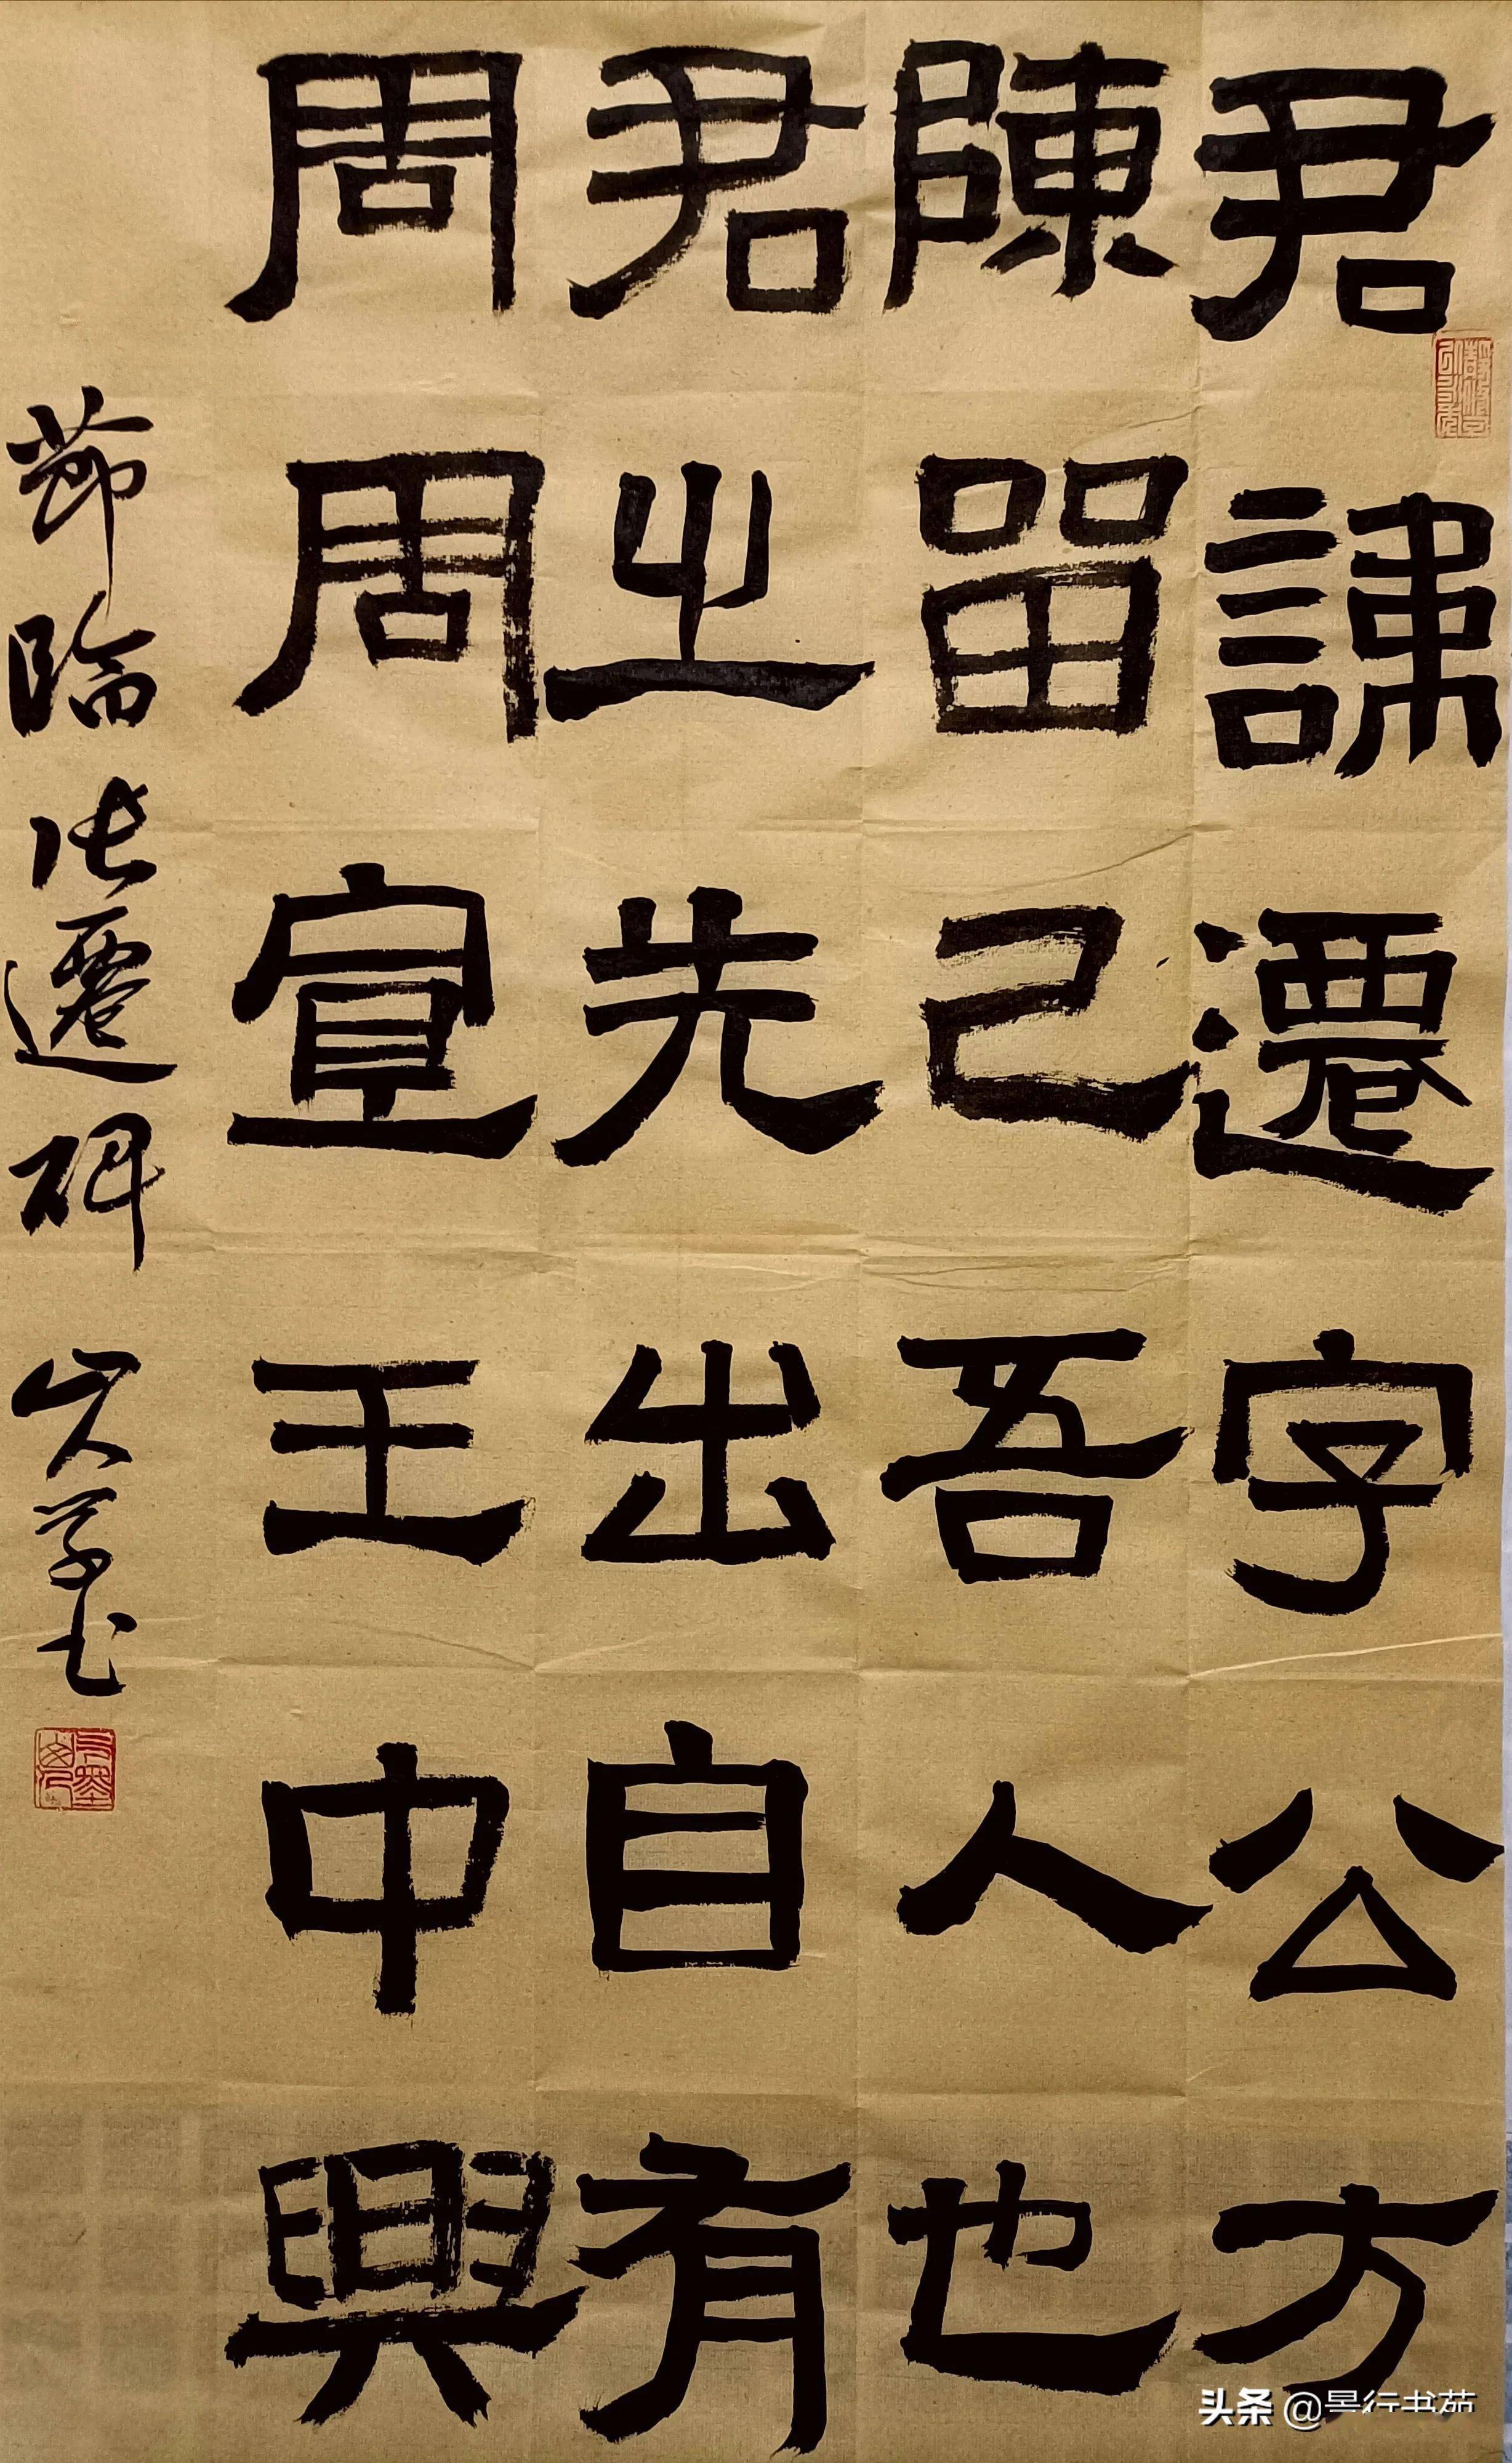 君諱遷字公方
陳留己吾人也
君之先出自有
周周宣王中興
節臨張遷碑
头条 @景行书苑